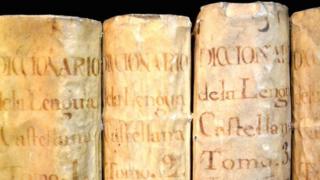 DICCIONARIO
de la Lengua
Castellana
Tomo. 1
DICCIONARIO
de la Lengua
Castellana
Tomo. 2.
DICCIONA
de la Lengu
Castellana
Tomo. 3.